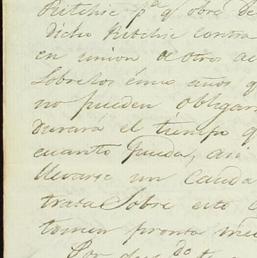 Ritchie pa. q. obre de
dicho Ritchie contra
en union de otros ac
Sobre los cinco años q
no pueden obligar
durará el tiempo q
cuanto pueda, an
llevarse un cauda
trata Sobre esto
tomen pronta me
Por dus do